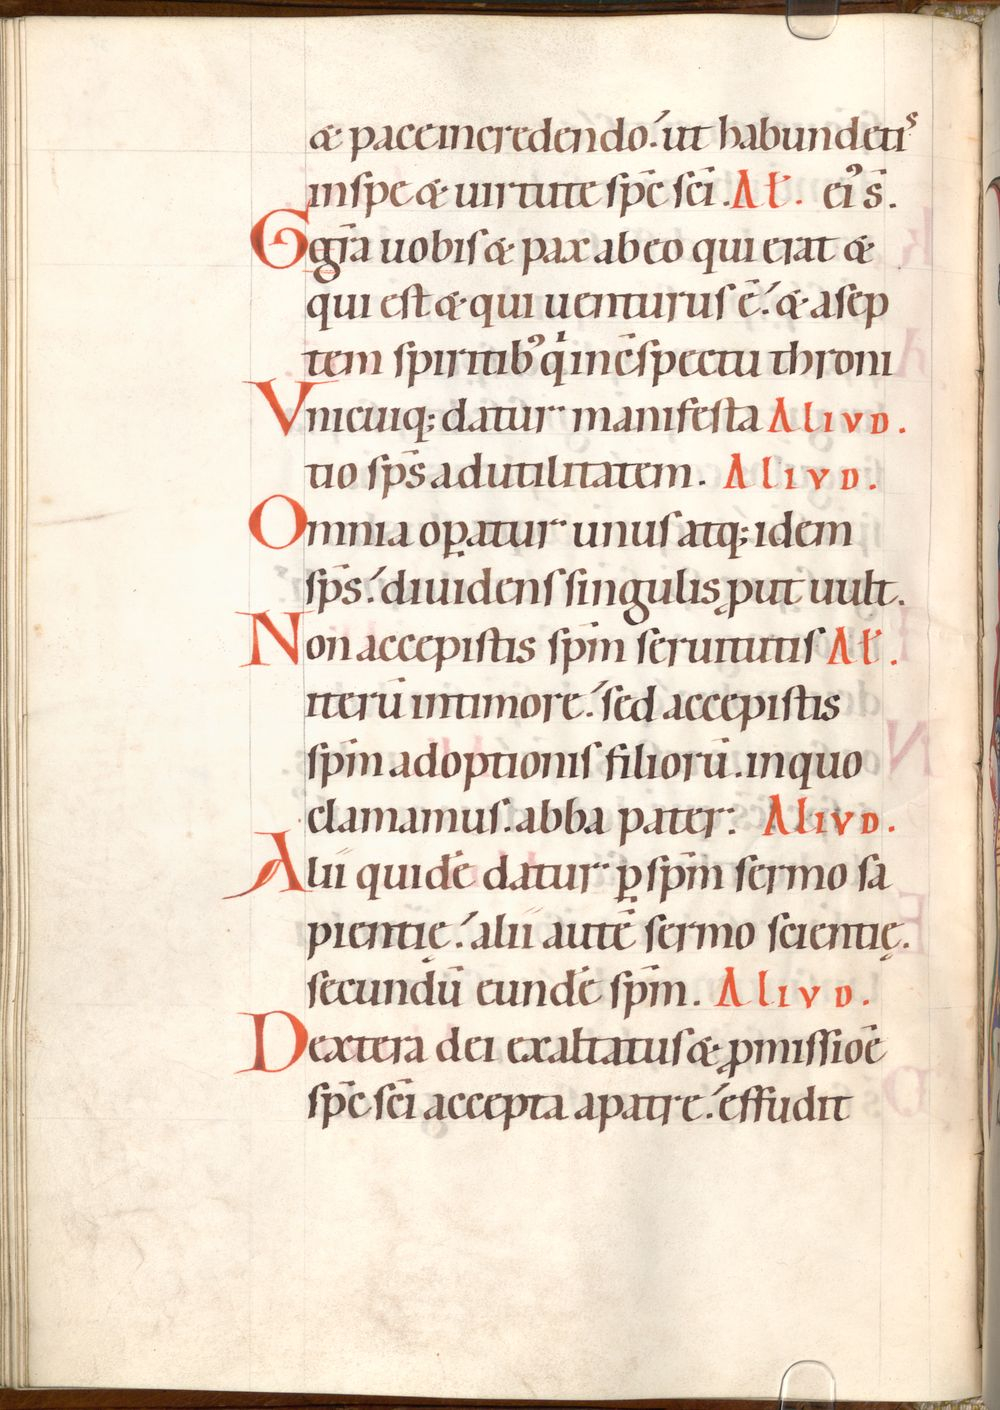 & pace in credendo. ut habundetis
in spe & uirtute spc̄ sc̄i. Al̄. eiꝰ s̄.
Ggr̄a uobis & pax ab eo qui erat &
qui est & qui uenturus ē. & a sep
tem spiritibꝰ qͥ in c̄spectu throni
Vnicuiq; datur manifesta ALIVD.
tio sps̄ ad utilitatem. ALIVD.
Omnia oꝑatur unus atq; idem
sps̄. diuidens singulis ꝓut uult.
Non accepistis sp̄m seruitutis Al̄.
iterū in timore. sed accepistis
sp̄m adoptionis filiorū. in quo
clamamus. abba pater. ALIVD.
Alii quidē datur ꝑ sp̄m sermo sa
pientię. alii autē sermo scientię.
secundū eundē sp̄m. ALIVD.
Dextera dei exaltatus & ꝓmissionē
spc̄ sc̄i accepta a patre. effudit